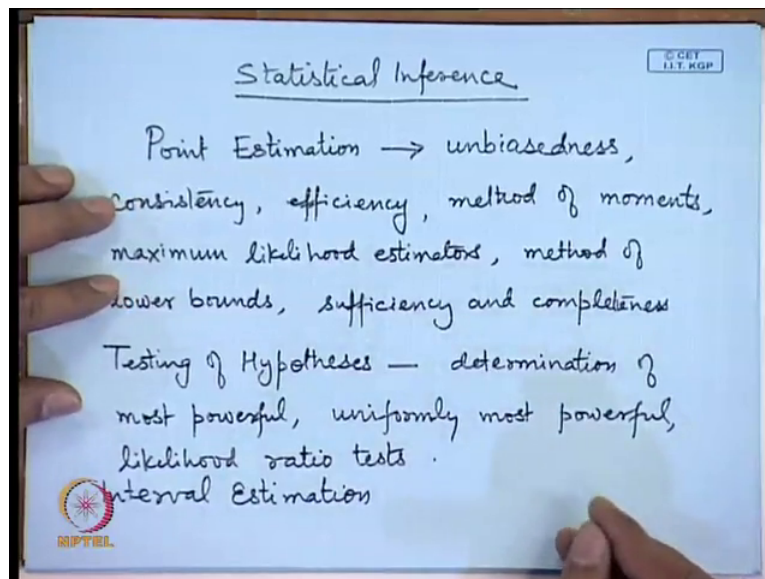 © CET
I.I.T. KGP
Statistical Inference
Point Estimation → unbiasedness,
consistency, efficiency, method of moments,
maximum likelihood estimators, method of
lower bounds, sufficiency and completeness
Testing of Hypotheses — determination of
most powerful, uniformly most powerful,
likelihood ratio tests.
Interval Estimation
NPTEL